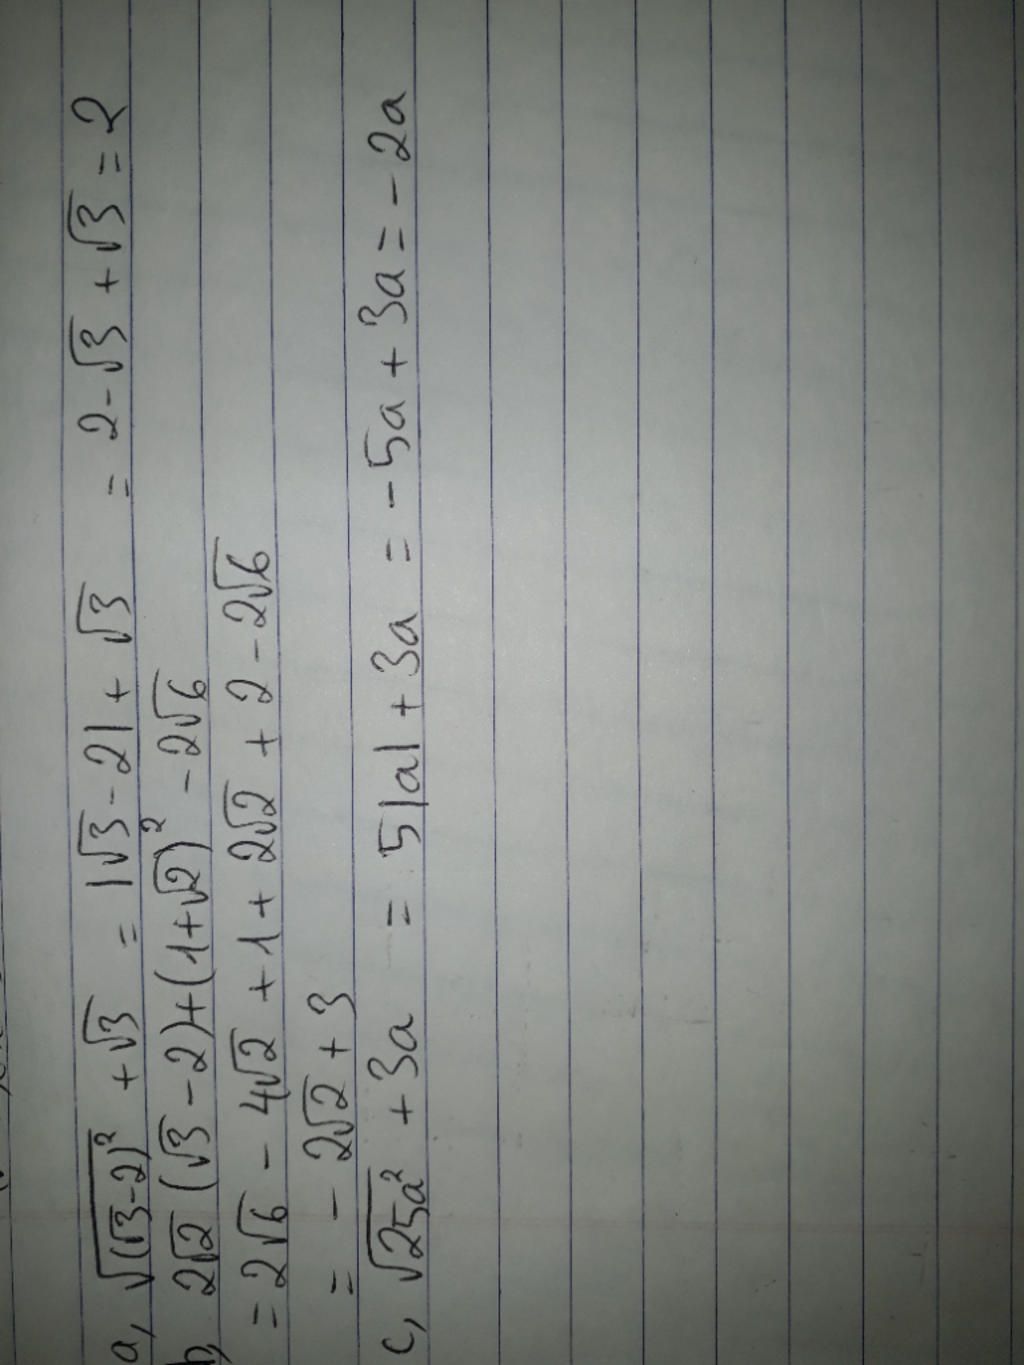 a, √(√3-2)² + √3 = |√3-2| + √3 = 2-√3 + √3 = 2
b, 2√2 (√3-2)+(1+√2)² - 2√6
= 2√6 - 4√2 + 1 + 2√2 + 2 - 2√6
= - 2√2 + 3
c, √25a² + 3a = 5|a| + 3a = -5a + 3a = - 2a